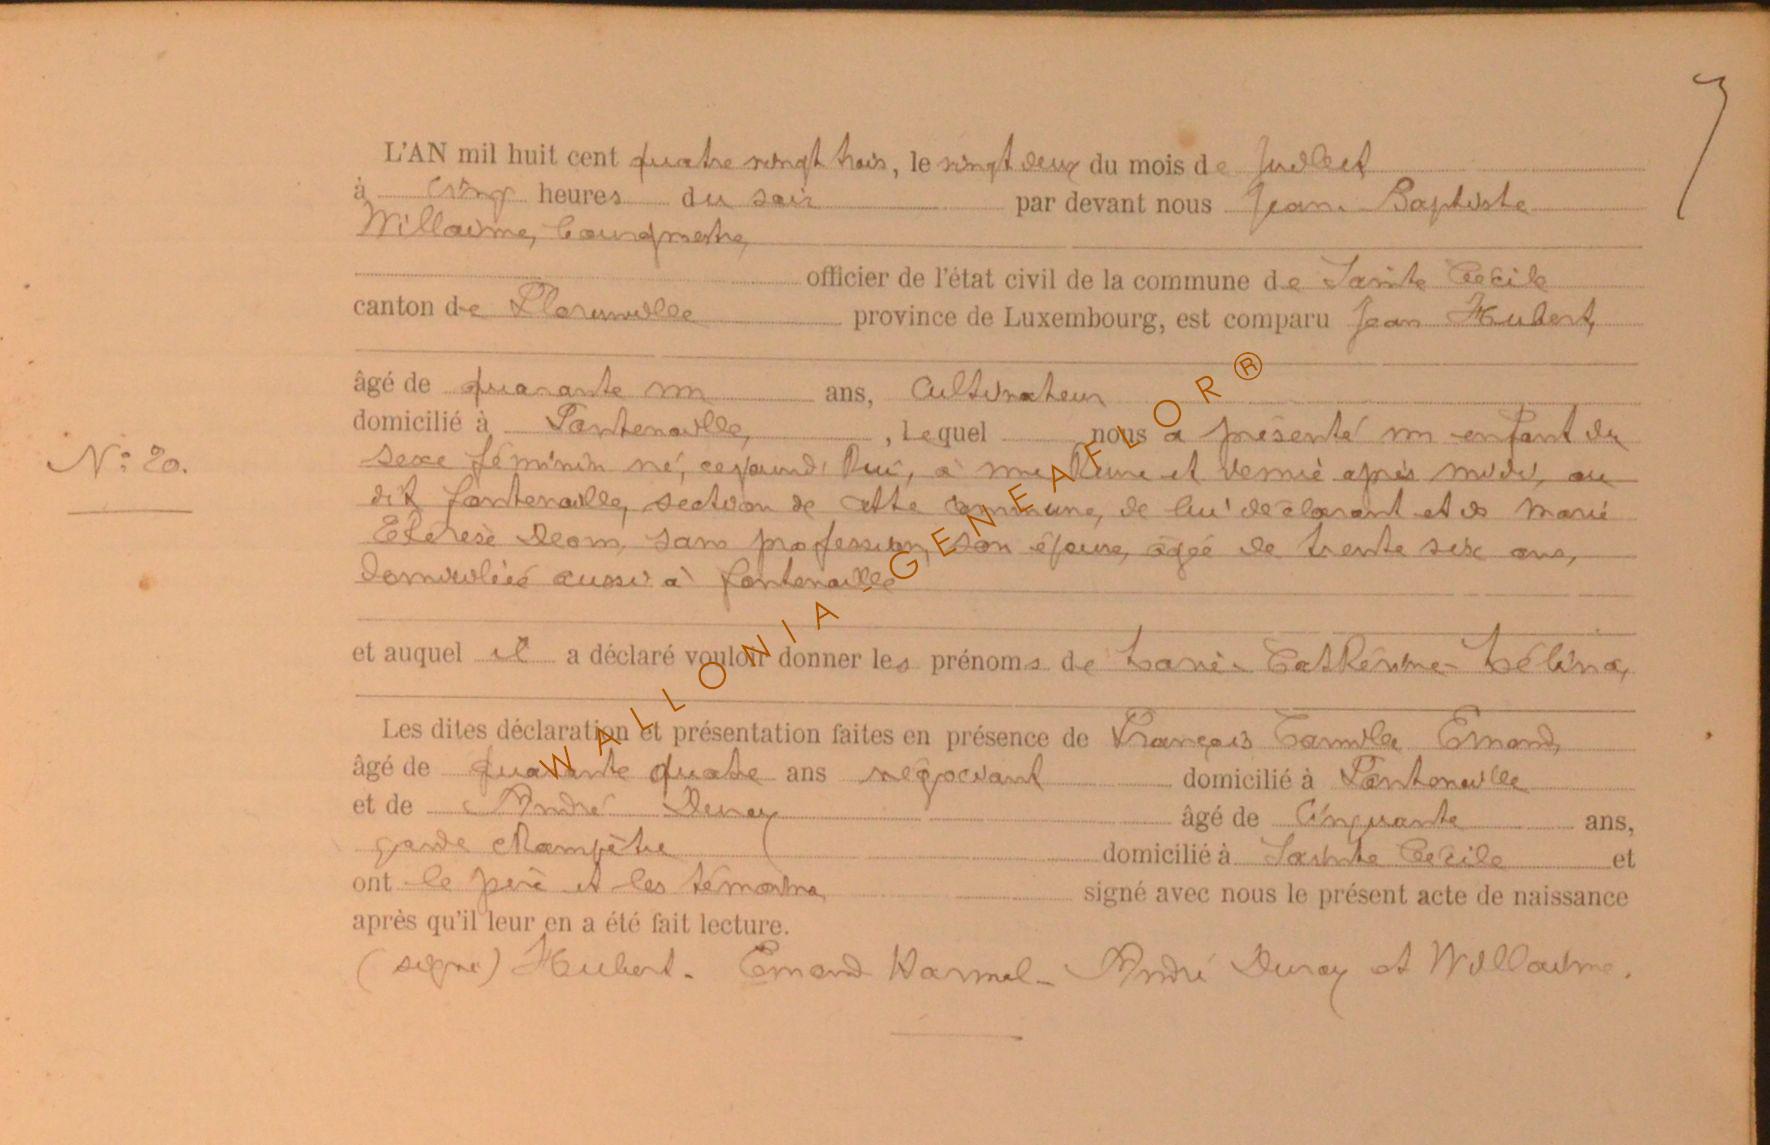 7
L'AN mil huit cent quatre vingt trois, le vingt deux du mois de Juillet
à cinq heures du soir par devant nous Jean Baptiste
Willaime, bourgmestre,
officier de l'état civil de la commune de Sainte Cecile
canton de Florenville province de Luxembourg, est comparu Jean Hubert,
âgé de quarante un ans, cultivateur
domicilié à Fontenaille, , Lequel nous a présenté un enfant du
N° 20.
sexe féminin né, cejourd'hui, à une heure et demie après midi, au
dit fontenaille, section de cette commune, de lui déclarant et de Marie
Thérèse Deom, sans profession, son épouse, âgée de trente six ans,
domiciliée aussi à fontenaille
et auquel il a déclaré vouloir donner les prénoms de Catherine
Les dites déclaration et présentation faites en présence de François Camille Emond,
âgé de quarante quatre ans négociant domicilié à Fontenaille
et de André Duray âgé de Cinquante ans,
garde champêtre domicilié à Sainte Cecile et
ont le père et les témoins signé avec nous le présent acte de naissance
après qu'il leur en a été fait lecture.
(signé) Hubert. Emond André Duray et Willaime.
WALLONIA-GENEAFLOR®